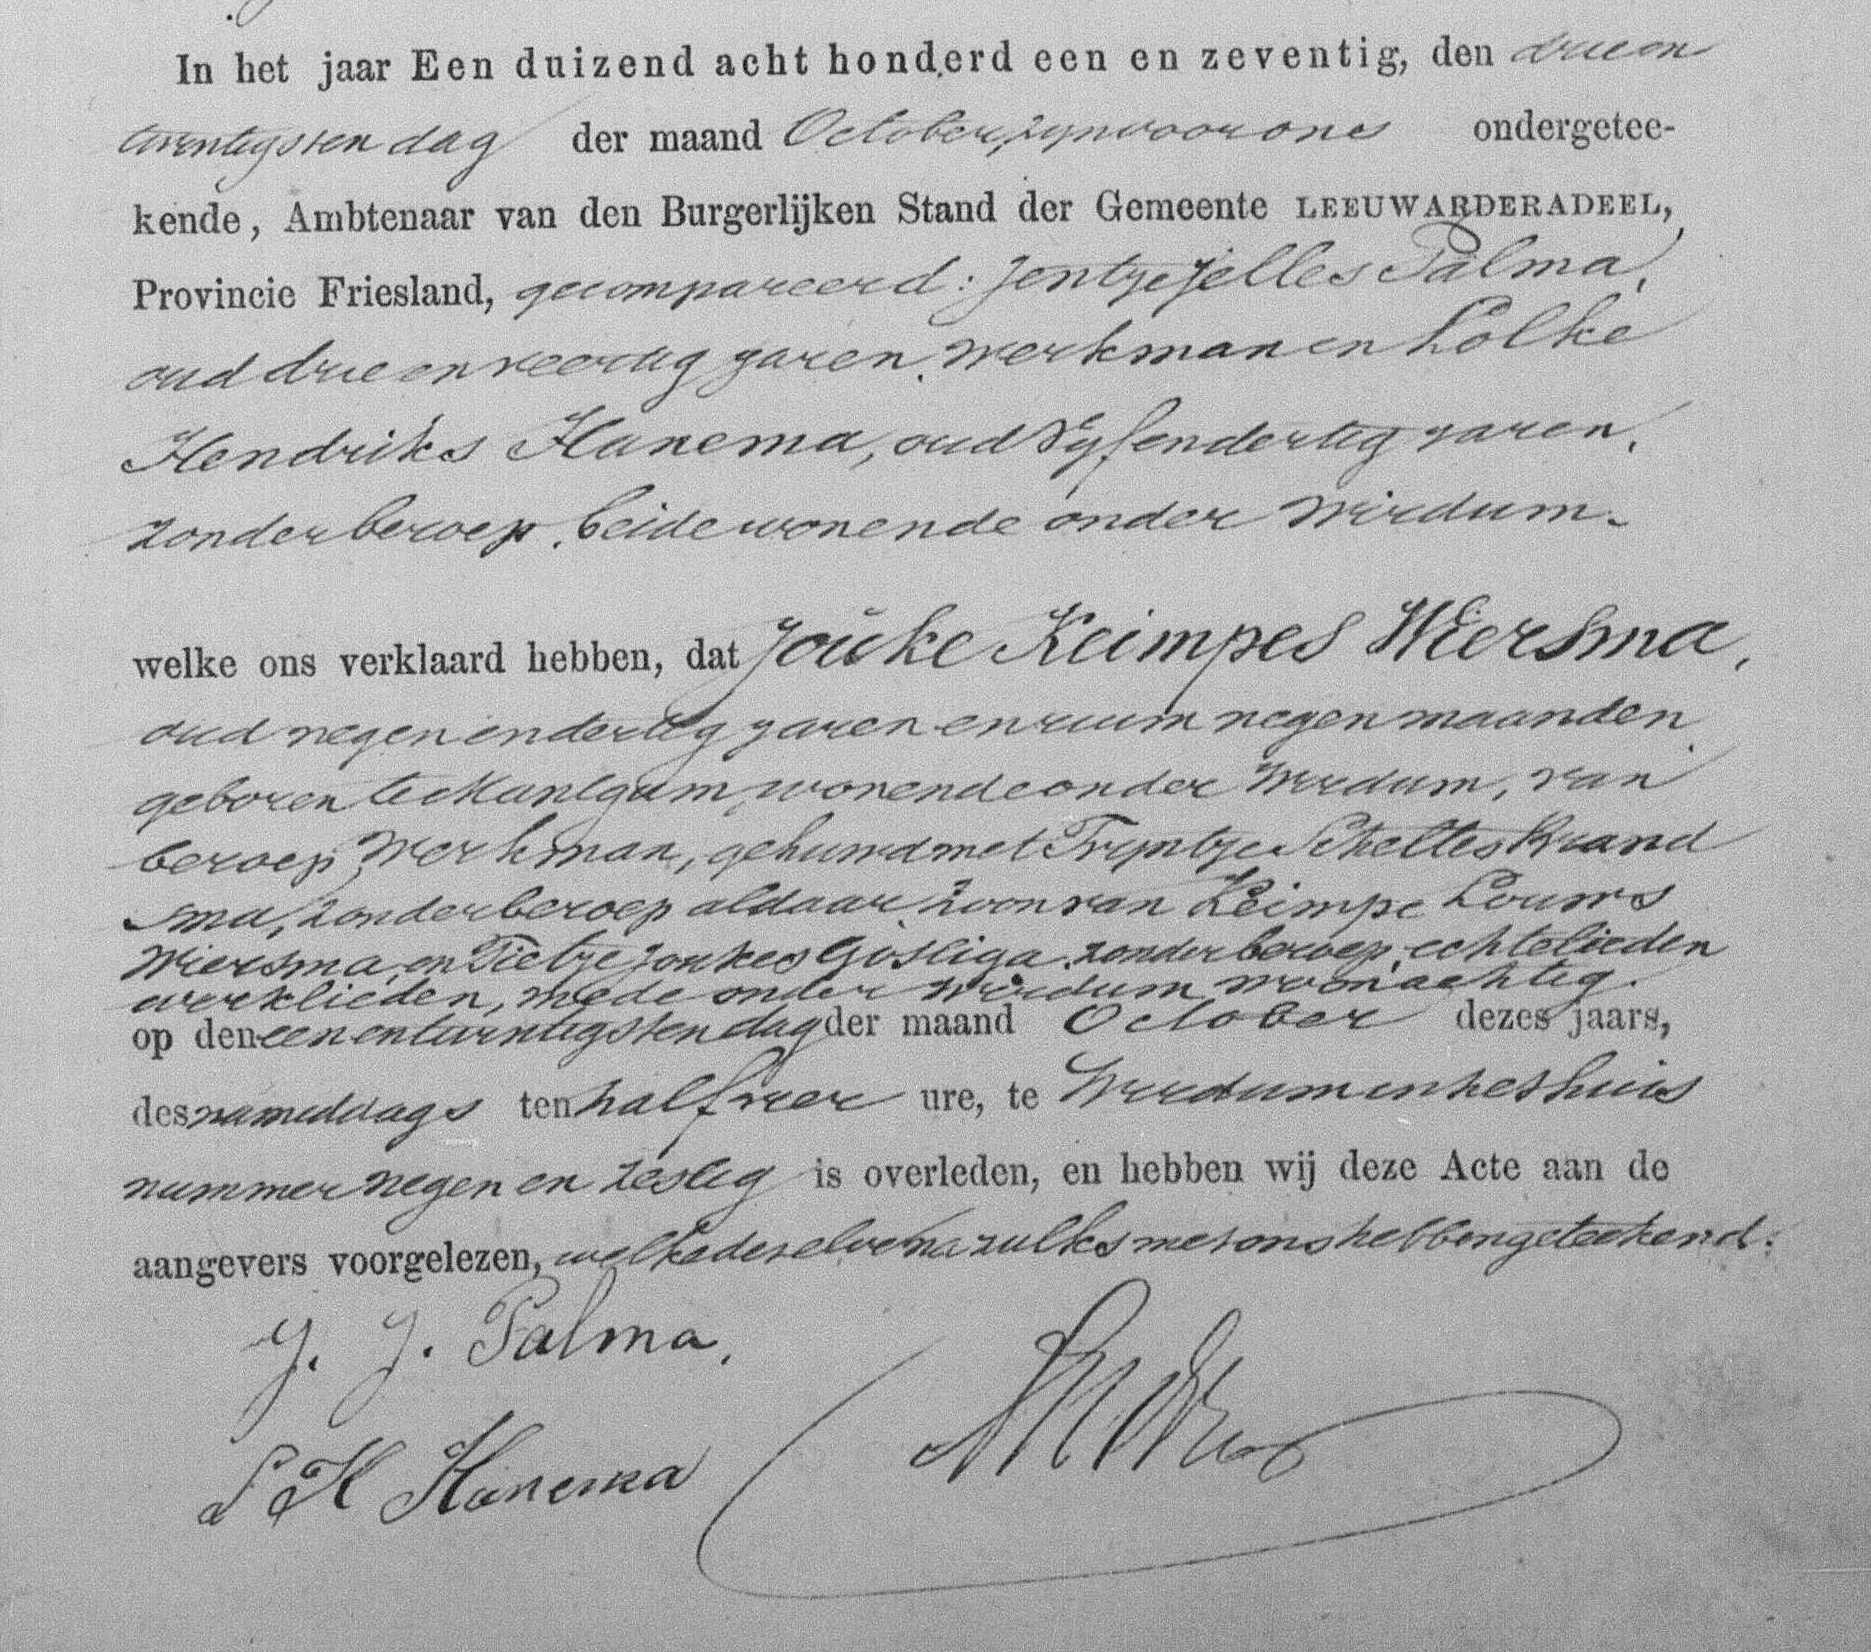 In het jaar Een duizend acht honderd een en zeventig, den drie en
twintigsten dag der maand October, zyn voor ons ondergetee-
kende, Ambtenaar van den Burgerlijken Stand der Gemeente LEEUWARDERADEEL,
Provincie Friesland, gecompareerd: Jentje Jelles Palma,
oud drie en veertig jaren, werkman en Lolke
Hendriks Hanema, oud vyf en dertig jaren,
zonder beroep, beide wonende onder Wirdum.
welke ons verklaard hebben, dat Jouke Keimpes Wiersma,
oud negen en dertig jaren en ruim negen maanden
geboren te Mantgum, wonende onder Wirdum, van
beroep Werkman, gehuwd met Tryntje Scheltes Brand
sma, zonder beroep aldaar, zoon van Keimpe Louws
Wiersma en Tietje Joukes Gosliga, zonder beroep, echtelieden
werklieden, mede onder Wirdum woonachtig.
op den een en twintigsten dag der maand October dezes jaars,
des namiddags ten half vier ure, te Wirdum in het huis
nummer negen en zestig is overleden, en hebben wij deze Acte aan de
aangevers voorgelezen, welke dezelve na zulks met ons hebben geteekend.
J. J. Palma.
L H Hanema